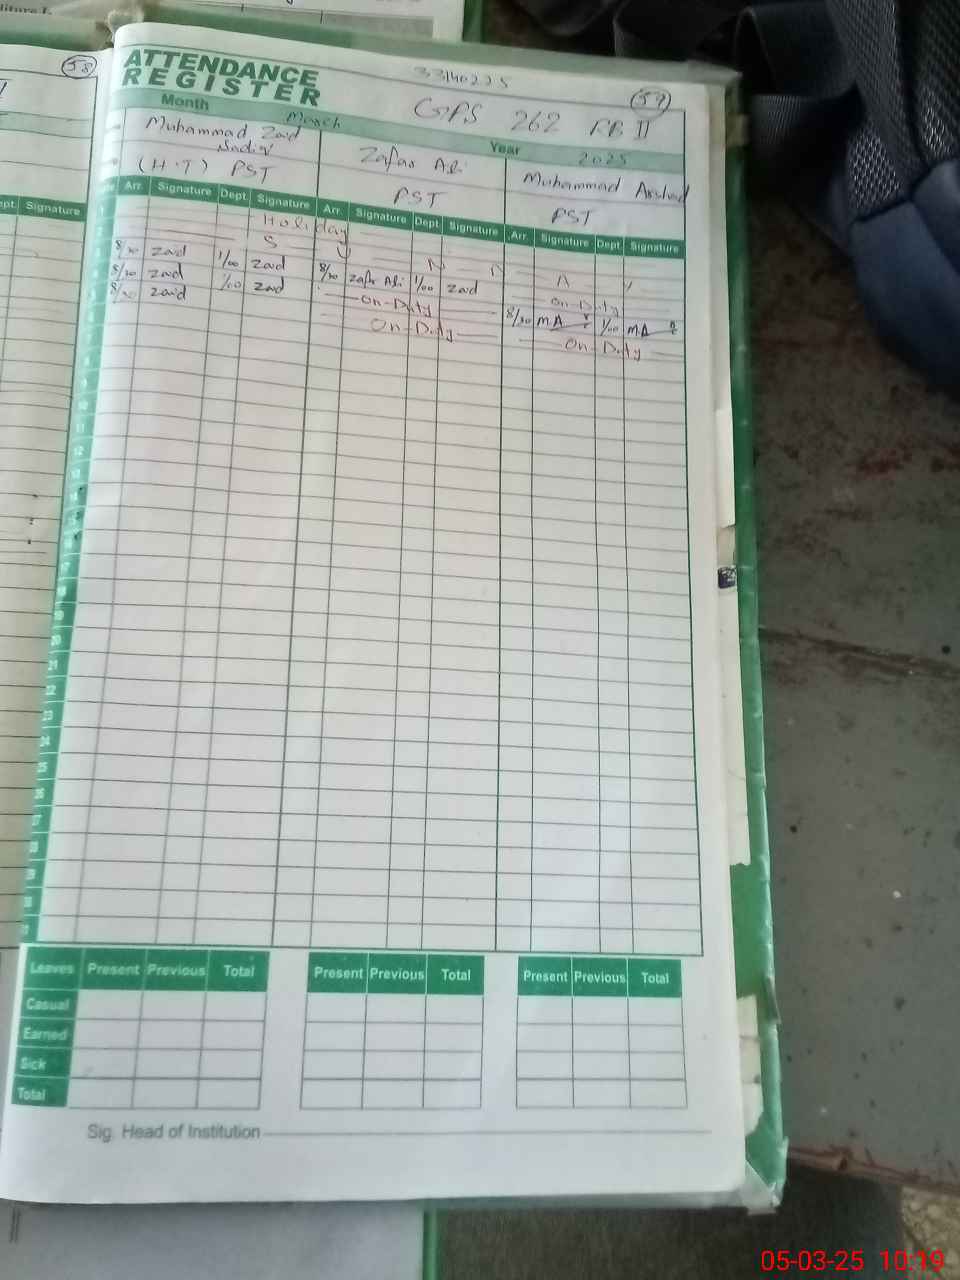 58
ept. Signature
ATTENDANCE
REGISTER
33140225
59
GPS 262 RB II
Month March
Year 2025
Muhammad Zaid
(H.T) PST
Zafar Ali
PST
Muhammad Arshad
PST
Arr. Signature Dept. Signature Arr. Signature Dept. Signature Arr. Signature Dept. Signature
Holiday
S U N D A Y
8/30 zaid 1/00 zaid 8/30 Zafar Ali 1/00 zaid On-Duty
8/30 zaid 1/00 zaid On-Duty 8/30 M.A 1/00 M.A
8/30 zaid On-Duty On-Duty
9
10
11
12
13
14
15
16
17
18
19
20
21
22
23
24
25
26
27
28
29
Leaves Present Previous Total Present Previous Total Present Previous Total
Casual
Earned
Sick
Total
Sig. Head of Institution
05-03-25 10:19